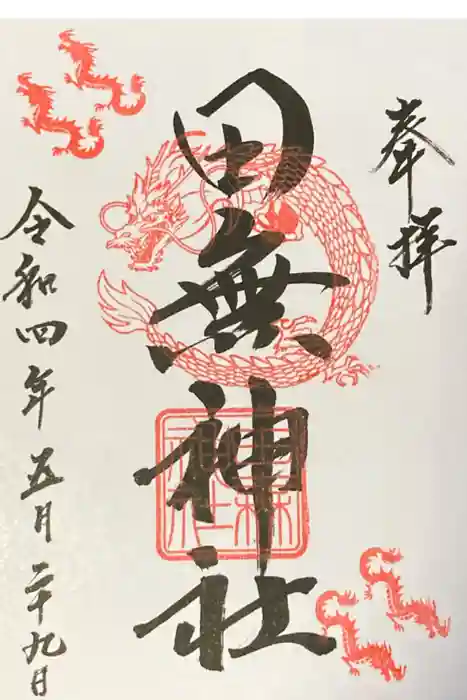 奉拝
田無神社
令和四年五月二十九日
田無神社